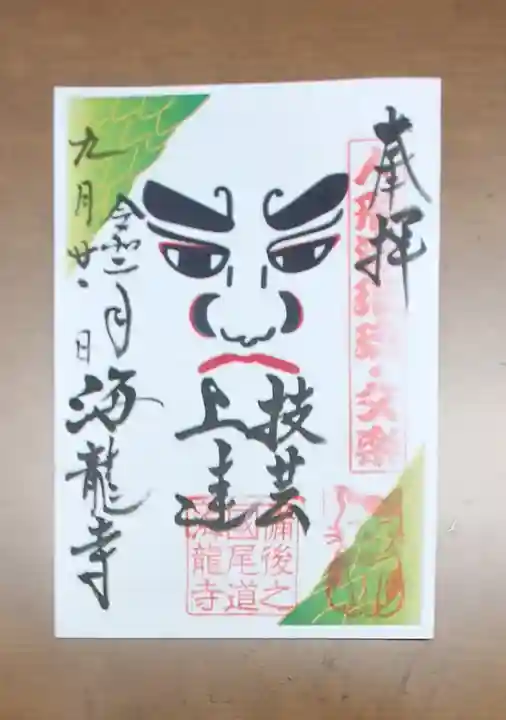 奉拝
人形浄瑠璃・文楽
技芸
上達
備後之
國尾道
海龍寺
令和二月
九月廿日
海龍寺